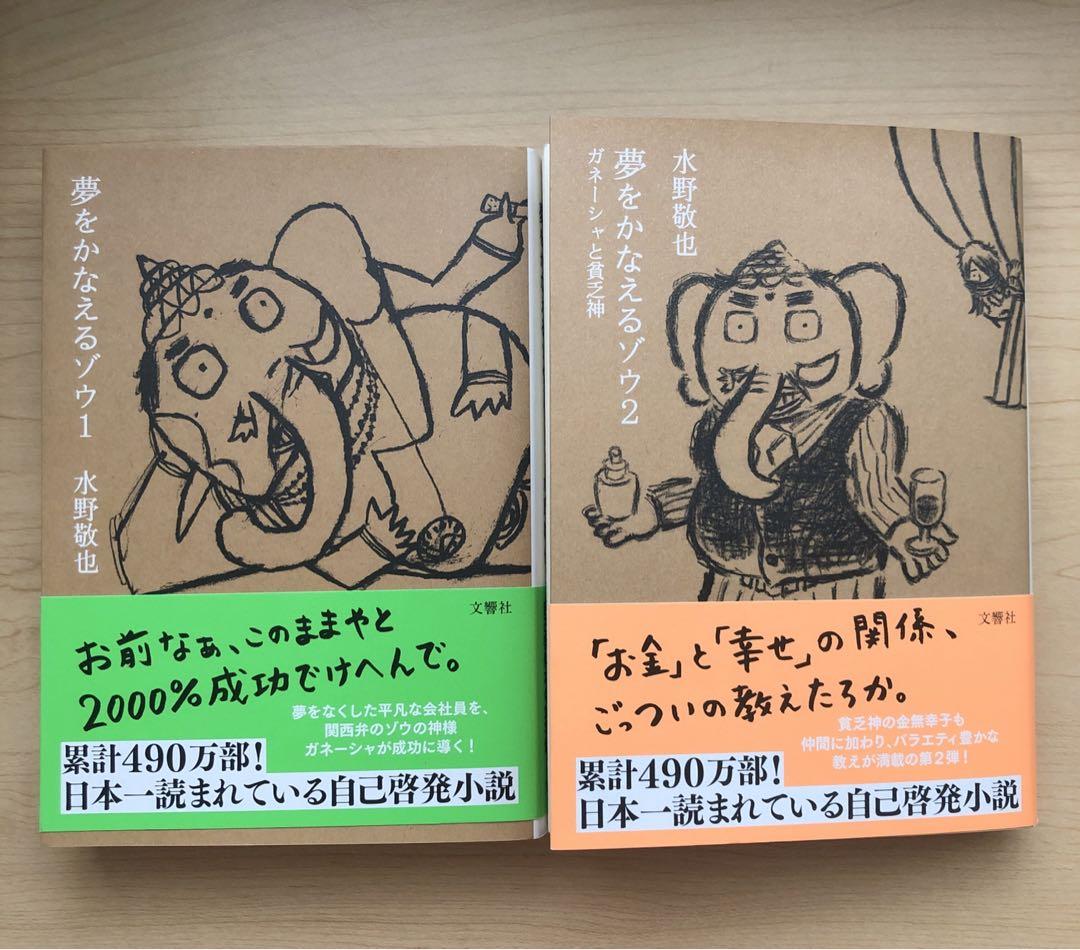 夢をかなえるゾウ1
水野敬也
文響社
お前なぁ、このままやと
2000%成功でけへんで。
夢をなくした平凡な会社員を、
関西弁のゾウの神様
ガネーシャが成功に導く!
累計490万部!
日本一読まれている自己啓発小説
水野敬也
夢をかなえるゾウ2
ガネーシャと貧乏神
文響社
「お金」と「幸せ」の関係、
ごっついの教えたろか。
貧乏神の金無幸子も
仲間に加わり、バラエティ豊かな
教えが満載の第2弾!
累計490万部!
日本一読まれている自己啓発小説